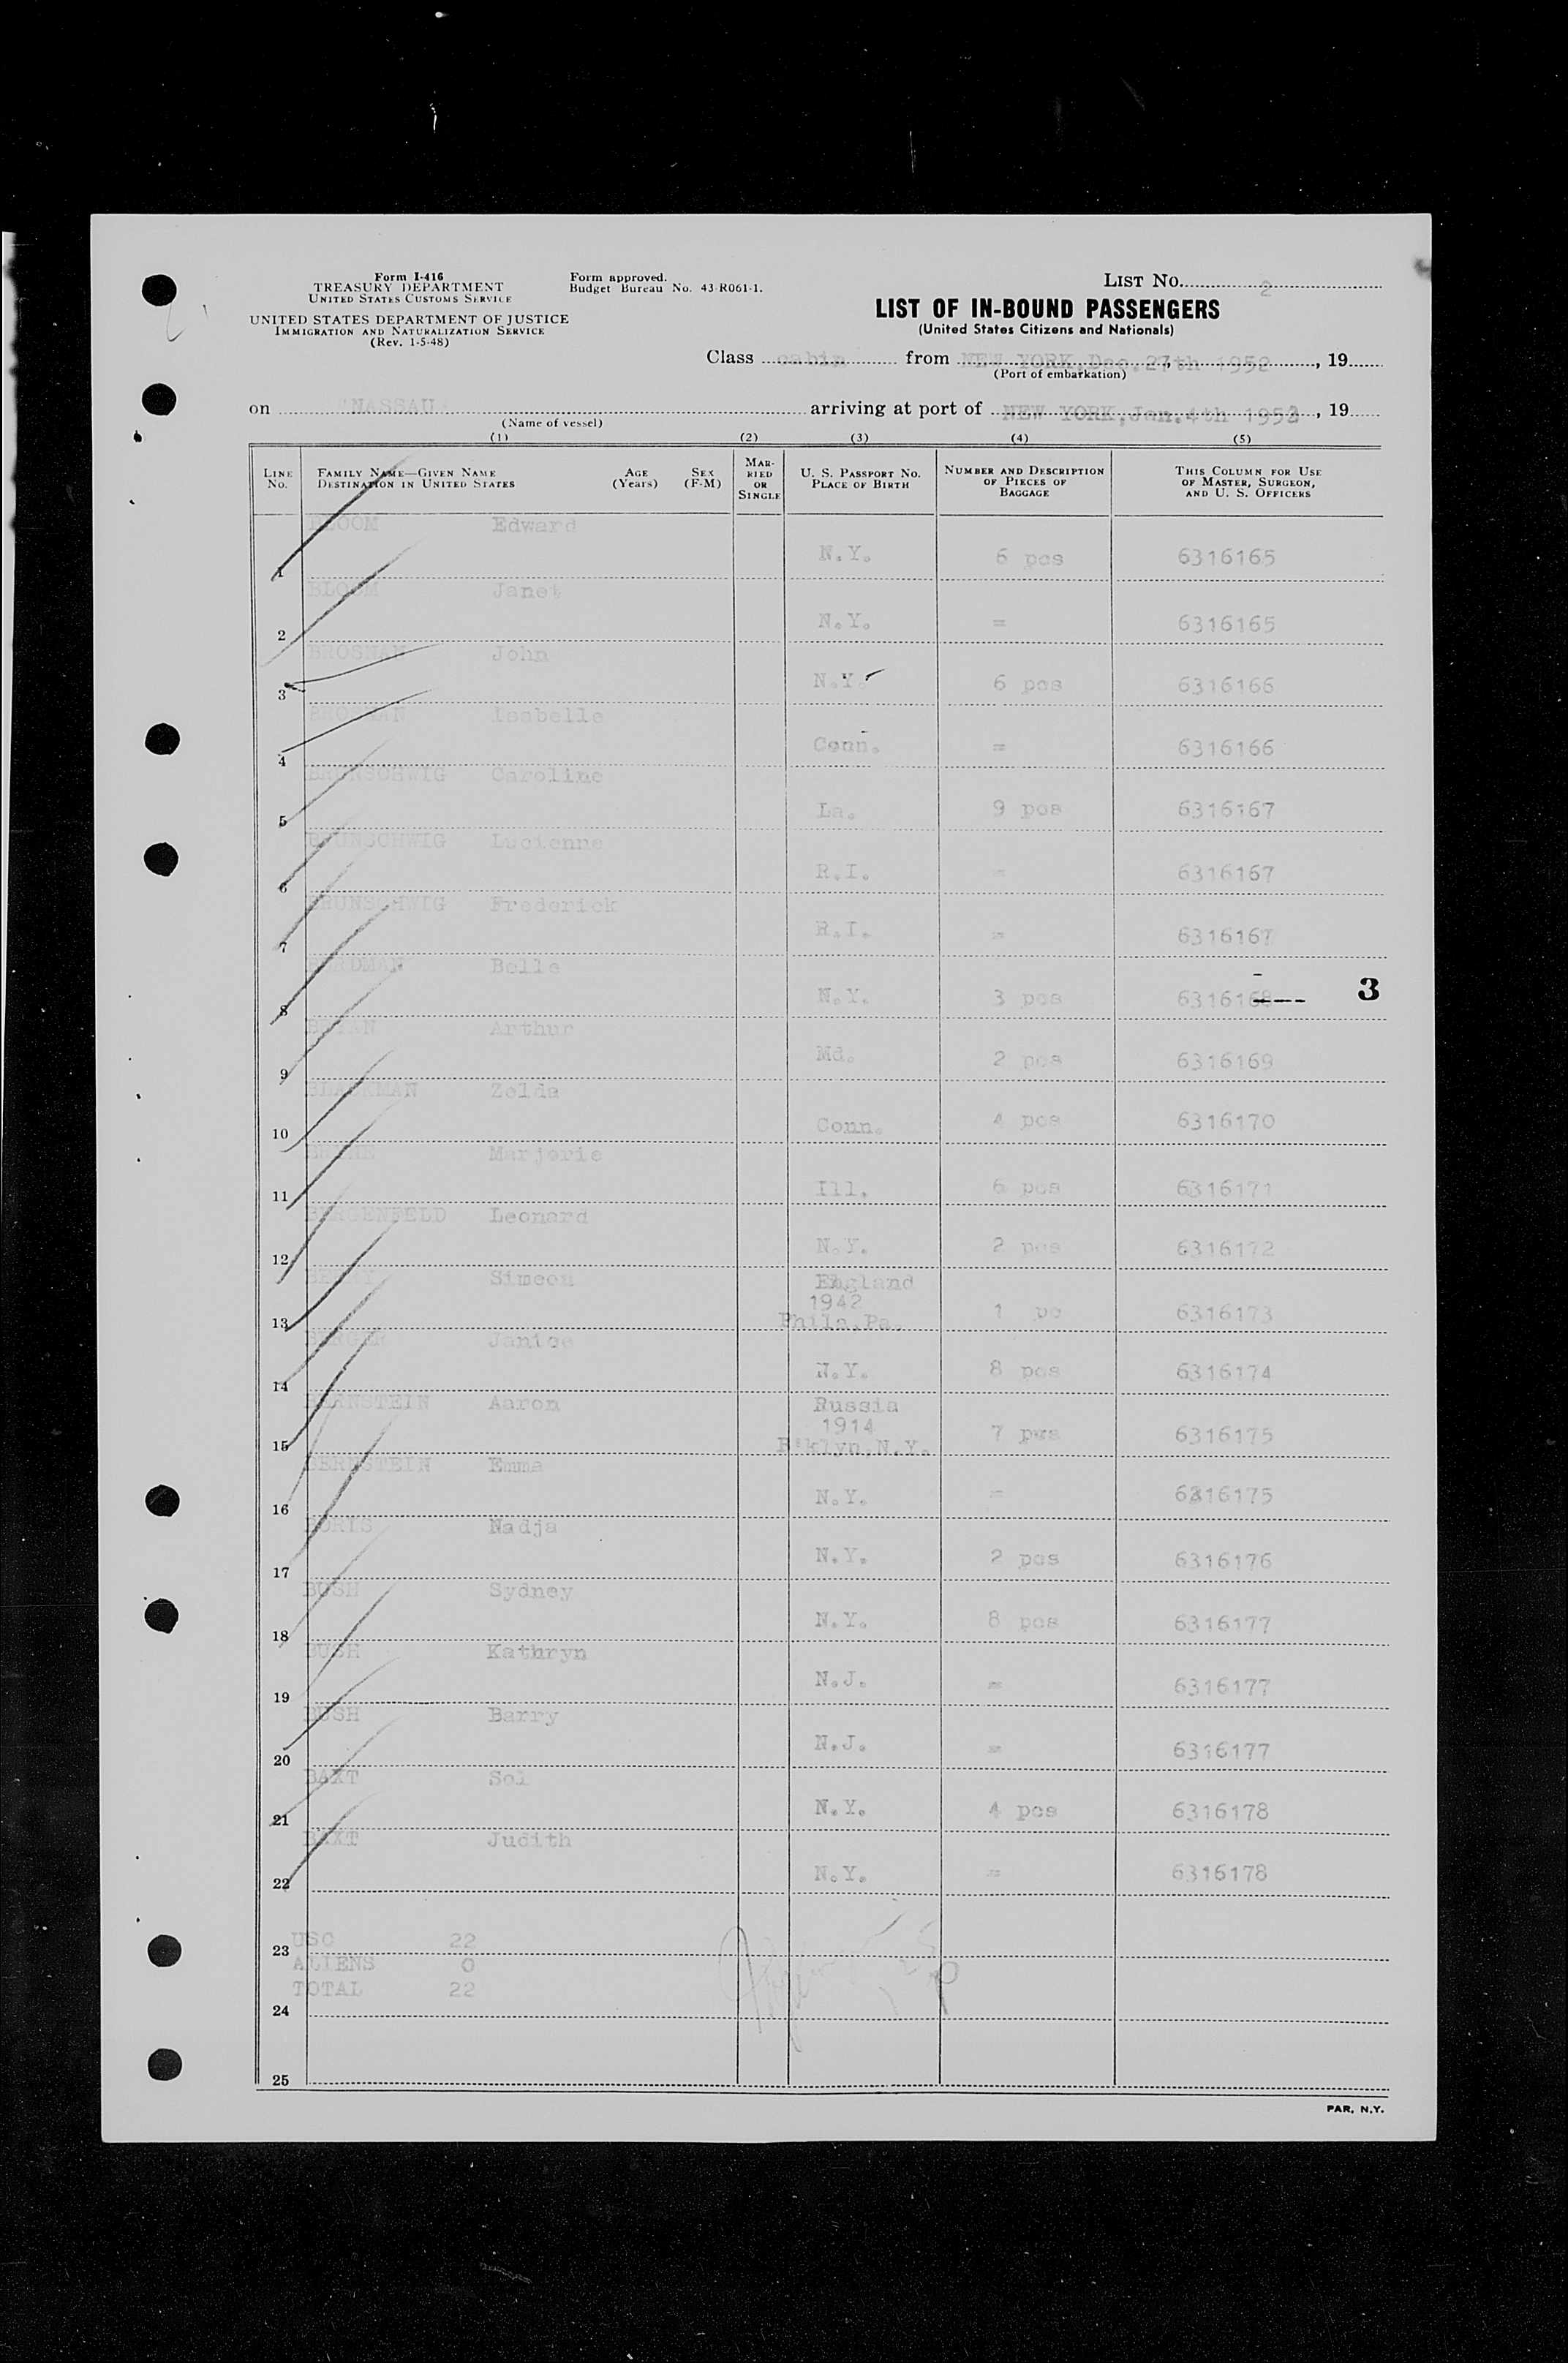 Form I-416
TREASURY DEPARTMENT
UNITED STATES CUSTOMS SERVICE
UNITED STATES DEPARTMENT OF JUSTICE
IMMIGRATION AND NATURALIZATION SERVICE
(Rev. 1-5-48)
Form approved.
Budget Bureau No. 43-R061-1.
LIST No. 2
LIST OF IN-BOUND PASSENGERS
(United States Citizens and Nationals)
Class cabin from NEW YORK, Dec. 27th 1952, 19
(Port of embarkation)
on "NASSAU" arriving at port of NEW YORK, Jan. 4th 1953, 19
(Name of vessel)
(1) (2) (3) (4) (5)
LINE No. FAMILY NAME—GIVEN NAME DESTINATION IN UNITED STATES AGE (Years) SEX (F-M) MARRIED OR SINGLE U. S. PASSPORT No. PLACE OF BIRTH NUMBER AND DESCRIPTION OF PIECES OF BAGGAGE THIS COLUMN FOR USE OF MASTER, SURGEON, AND U. S. OFFICERS
1 BLOOM Edward N.Y. 6 pcs 6316165
2 BLOOM Janet N.Y. = 6316165
3 BROSNAN John N.Y. 6 pcs 6316166
4 BROSNAN Isabelle Conn. = 6316166
5 BRUNSCHWIG Caroline La. 9 pcs 6316167
6 BRUNSCHWIG Lucienne R.I. = 6316167
7 BRUNSCHWIG Frederick R.I. = 6316167
8 Belle N.Y. 3 pcs 6316168 --- 3
9 Arthur Md. 2 pcs 6316169
10 Zelda Conn. 4 pcs 6316170
11 Marjorie Ill. 6 pcs 6316171
12 BERGENFELD Leonard N.Y. 2 pcs 6316172
13 Simeon England 1942 Phila.Pa. 1 pc 6316173
14 BERGER Janice N.Y. 8 pcs 6316174
15 BERNSTEIN Aaron Russia 1914 B'klyn,N.Y. 7 pcs 6316175
16 BERNSTEIN Emma N.Y. = 6316175
17 BORIS Nadja N.Y. 2 pcs 6316176
18 BUSH Sydney N.Y. 8 pcs 6316177
19 BUSH Kathryn N.J. = 6316177
20 BUSH Barry N.J. = 6316177
21 BAXT Sol N.Y. 4 pcs 6316178
22 BAXT Judith N.Y. = 6316178
23 USC 22
ALIENS 0
TOTAL 22
24
25
PAR. N.Y.